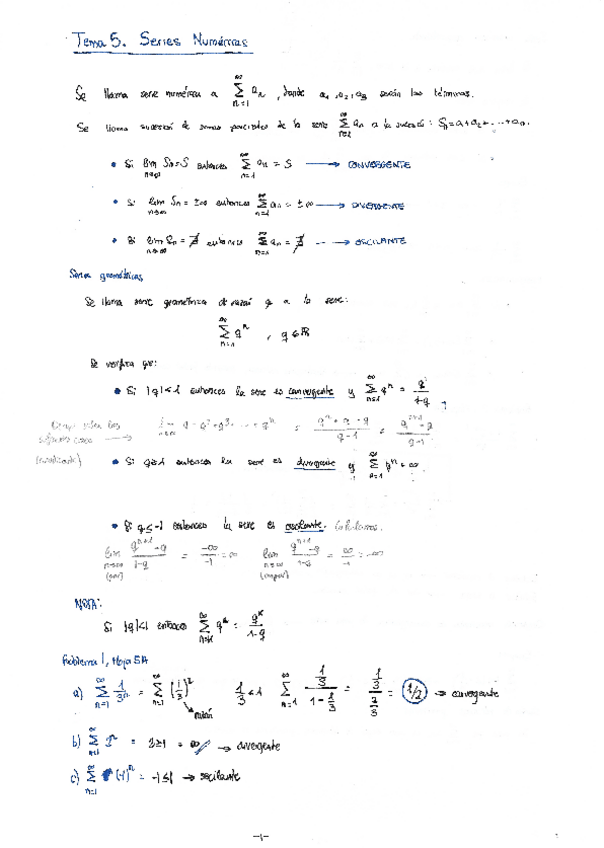 Tema 5. Series Numéricas
Se llama serie numérica a ∑_{n=1}^{∞} a_n , donde a_1, a_2, a_3 serán los términos.
Se llama sucesión de sumas parciales de la serie ∑ a_n a la sucesión: S_n = a_1 + a_2 + ... + a_n.
• Si lim_{n→∞} S_n = S entonces ∑_{n=1}^{∞} a_n = S → CONVERGENTE
• Si lim_{n→∞} S_n = ±∞ entonces ∑_{n=1}^{∞} a_n = ±∞ → DIVERGENTE
• Si lim_{n→∞} S_n = ∄ entonces ∑_{n=1}^{∞} a_n = ∄ → OSCILANTE
Series geométricas
Se llama serie geométrica de razón q a la serie:
∑_{n=1}^{∞} q^n , q ∈ ℝ
Se verifica que:
• Si |q|<1 entonces la serie es convergente y ∑_{n=1}^{∞} q^n = q/(1-q)
• Si q≥1 entonces la serie es divergente y ∑_{n=1}^{∞} q^n = ∞.
• Si q≤-1 entonces la serie es oscilante.
lim (q^{n+1} - q)/(1-q) = -∞/-1 = ∞ lim (q^{n+1} - q)/(1-q) = ∞/-1 = -∞
(par) (impar)
NOTA:
Si |q|<1 entonces ∑ q^n = q^k/(1-q)
Problema 1, Hoja 5A
a) ∑_{n=1}^{∞} 1/3^n = ∑_{n=1}^{∞} (1/3)^n 1/3 < 1 ∑_{n=1}^{∞} (1/3)/(1 - 1/3) = (1/3)/(2/3) = 1/2 → convergente
razón
b) = ∞ → divergente
c) ∑_{n=1}^{∞} (-1)^n = -1≤1 → oscilante
-1-